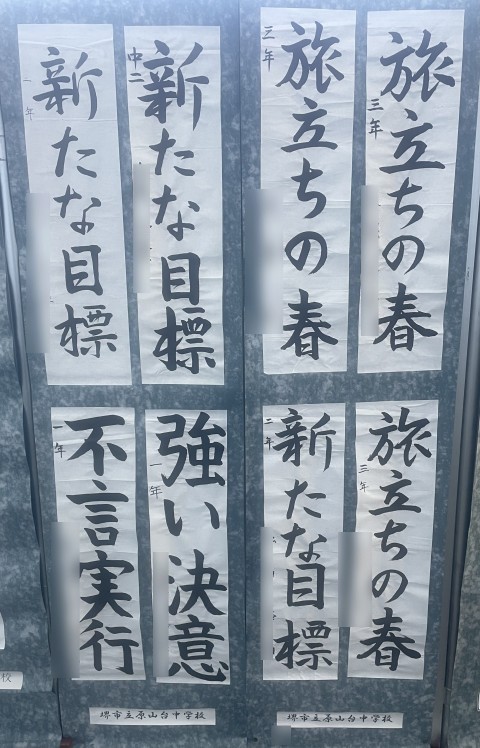 旅立ちの春
三年
旅立ちの春
三年
新たな目標
中二
新たな目標
一年
旅立ちの春
三年
新たな目標
二年
強い決意
一年
不言実行
一年
堺市立原山台中学校
堺市立原山台中学校
校